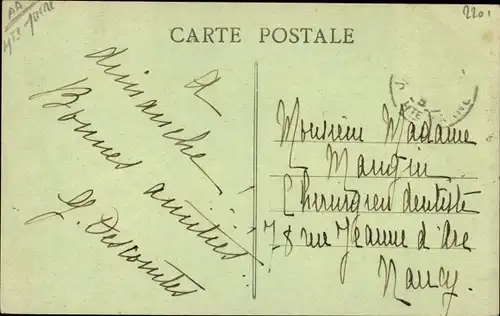 2201
CARTE POSTALE
A
dimanche
Bonnes amitiés.
G. Descomtes
Monsieur Madame
Mangin
Chirurgien dentiste
78 rue Jeanne d'Arc
Nancy.